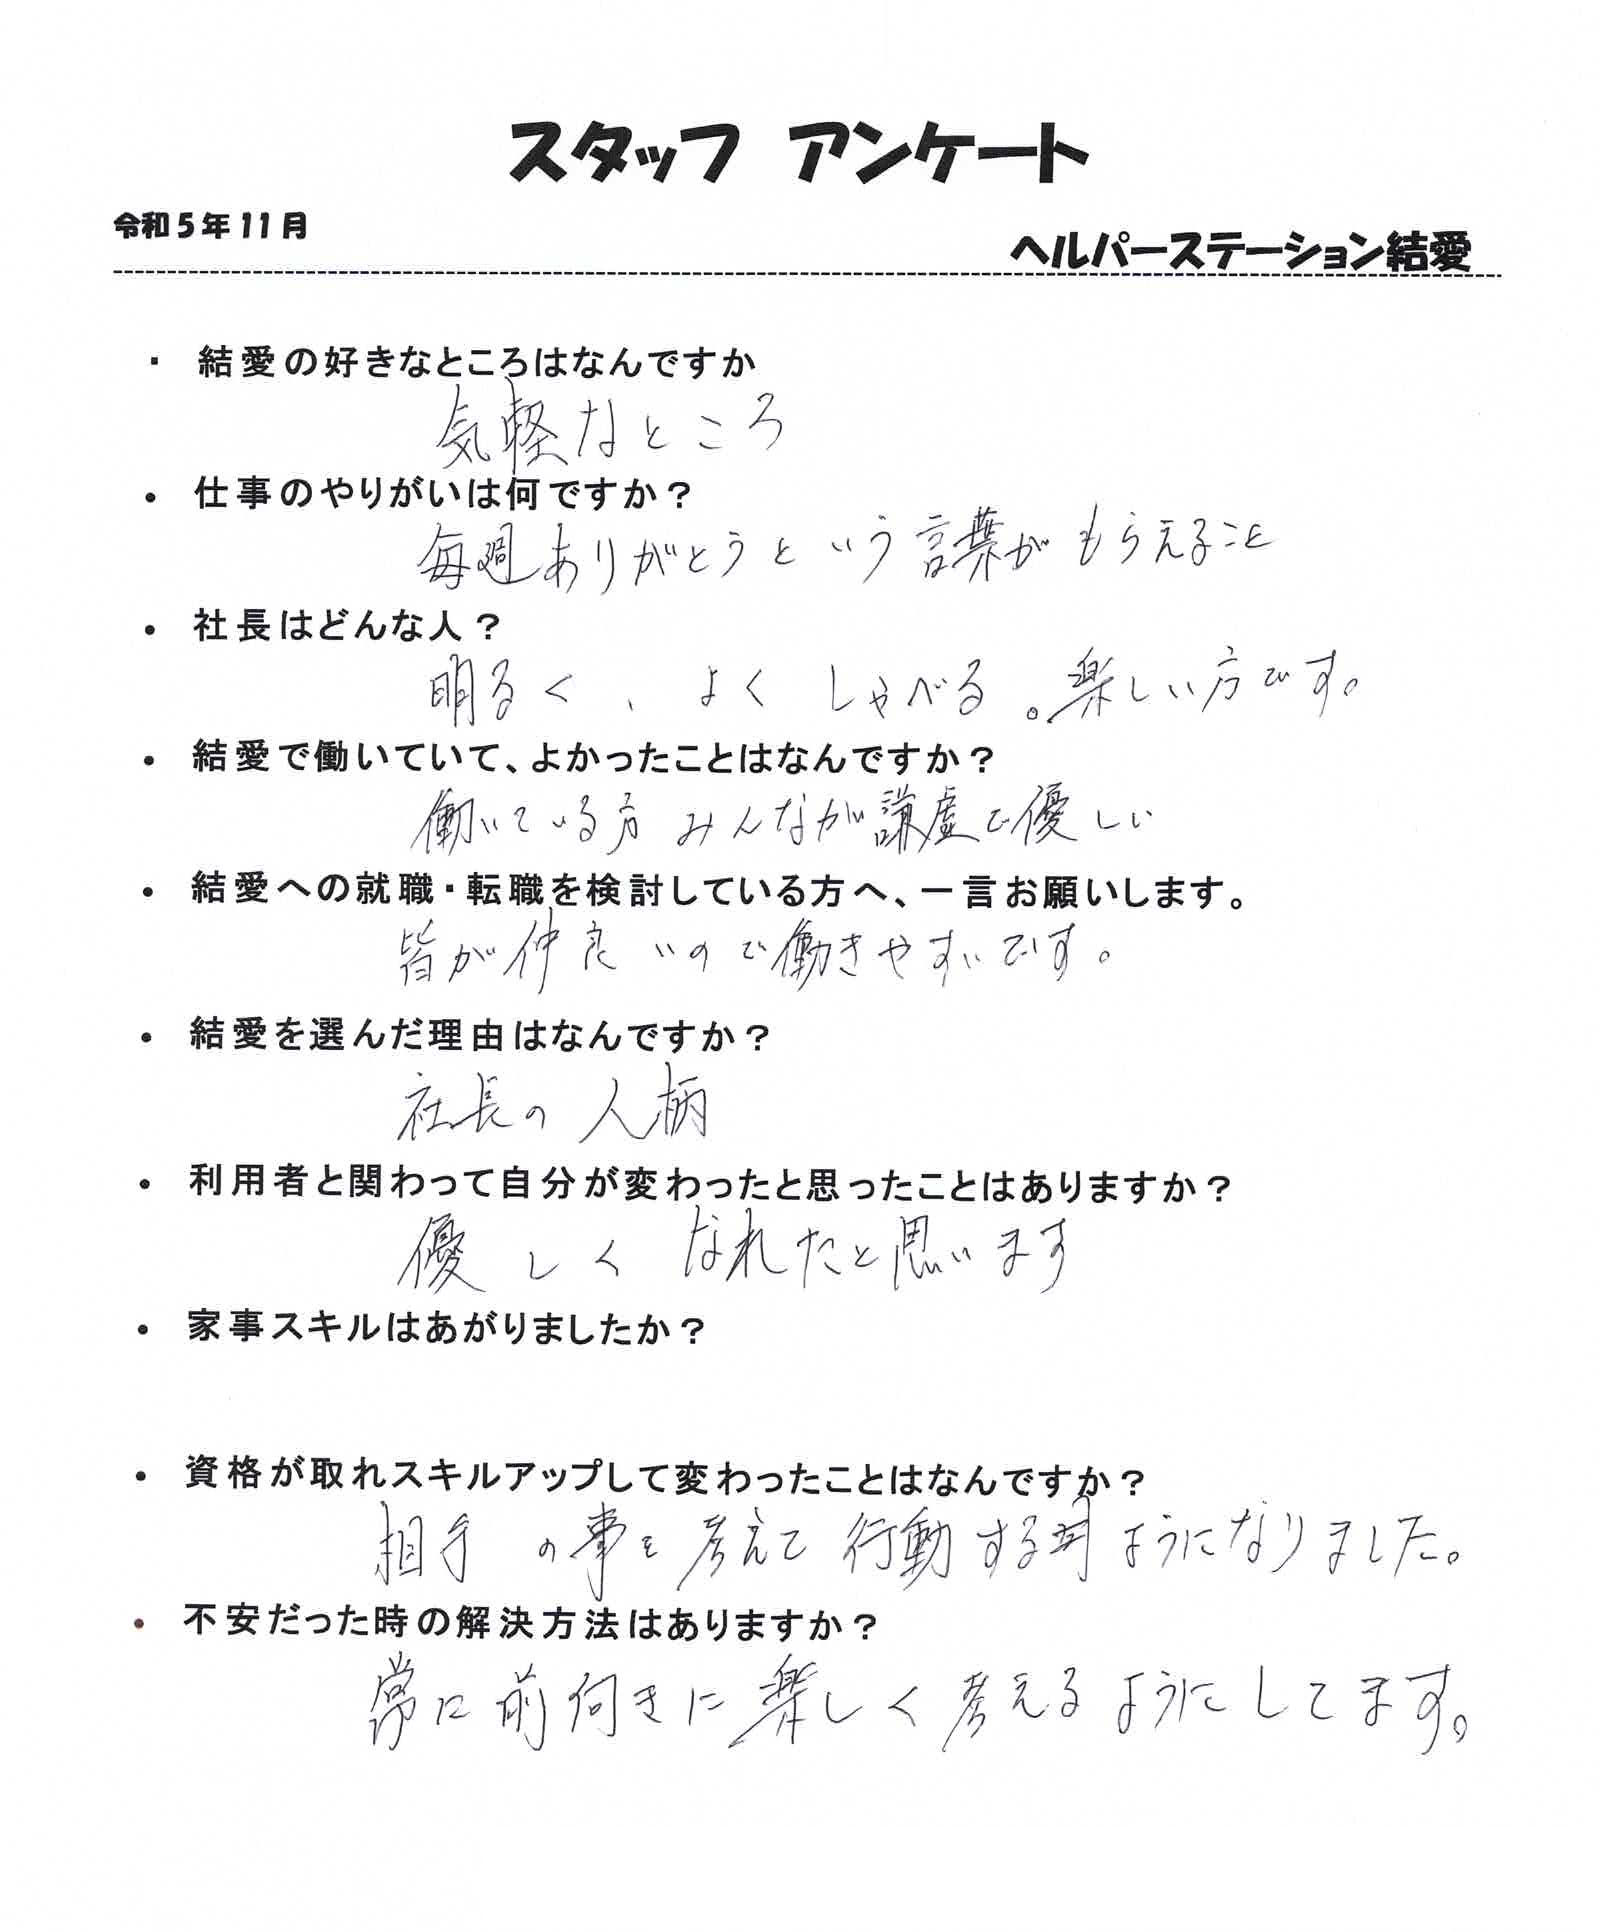 スタッフ アンケート
令和5年11月
ヘルパーステーション結愛
・ 結愛の好きなところはなんですか
気軽なところ
・ 仕事のやりがいは何ですか？
毎週ありがとうという言葉がもらえること
・ 社長はどんな人？
明るく、よくしゃべる。楽しい方です。
・ 結愛で働いていて、よかったことはなんですか？
働いている方みんなが謙虚で優しい
・ 結愛への就職・転職を検討している方へ、一言お願いします。
皆が仲良いので働きやすいです。
・ 結愛を選んだ理由はなんですか？
社長の人柄
・ 利用者と関わって自分が変わったと思ったことはありますか？
優しくなれたと思います
・ 家事スキルはあがりましたか？
・ 資格が取れスキルアップして変わったことはなんですか？
相手の事を考えて行動するようになりました。
・ 不安だった時の解決方法はありますか？
常に前向きに楽しく考えるようにしてます。